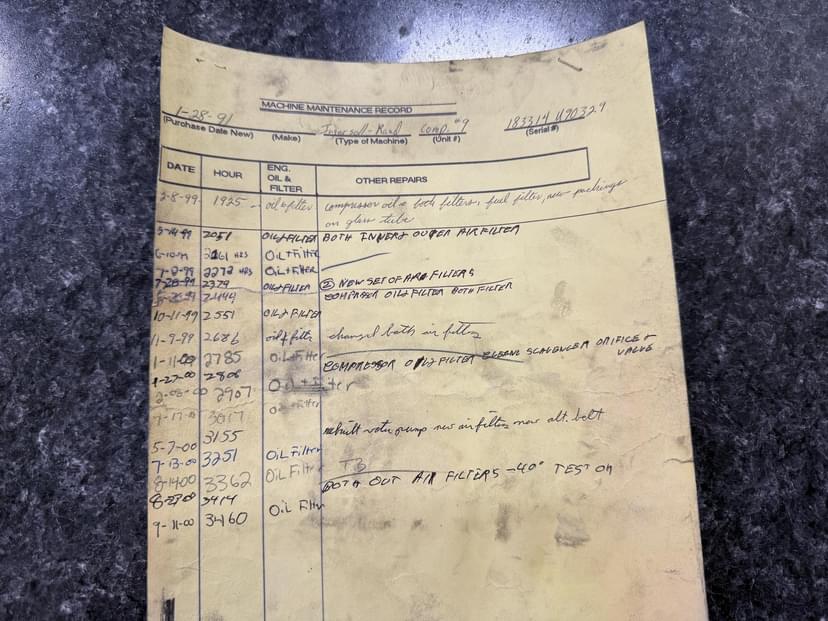 MACHINE MAINTENANCE RECORD
1-28-91 Ingersoll-Rand Comp. #9 183314 U90329
(Purchase Date New) (Make) (Type of Machine) (Unit #) (Serial #)
DATE HOUR ENG. OIL & FILTER OTHER REPAIRS
3-8-99 1925 oil & filter compressor oil & both filters, fuel filter, new packings
on glass tube
2051 OIL & FILTER BOTH INNER & OUTER AIR FILTER
2161 HRS OIL + FILTER
2272 HRS OIL + FILTER
7-28-99 2379 OIL & FILTER ② NEW SET OF AIR FILTERS
2444 COMPRESSOR OIL & FILTER BOTH FILTER
10-11-99 2551 OIL & FILTER
11-9-99 2686 oil & filter changed both air filters
2785 OIL + Filter
1-27-00 2806 COMPRESSOR OIL FILTER CLEAN SCAVENGER ORIFICE & VALVE
2907 Oil + Filter
3017 Oil + Filter
5-7-00 3155 rebuilt water pump new air filters new alt. belt
7-13-00 3251 OIL Filter
8-14-00 3362 OIL Filter
3414 BOTH OUT AIR FILTERS -40° TEST ON
9-11-00 3460 OIL Filter